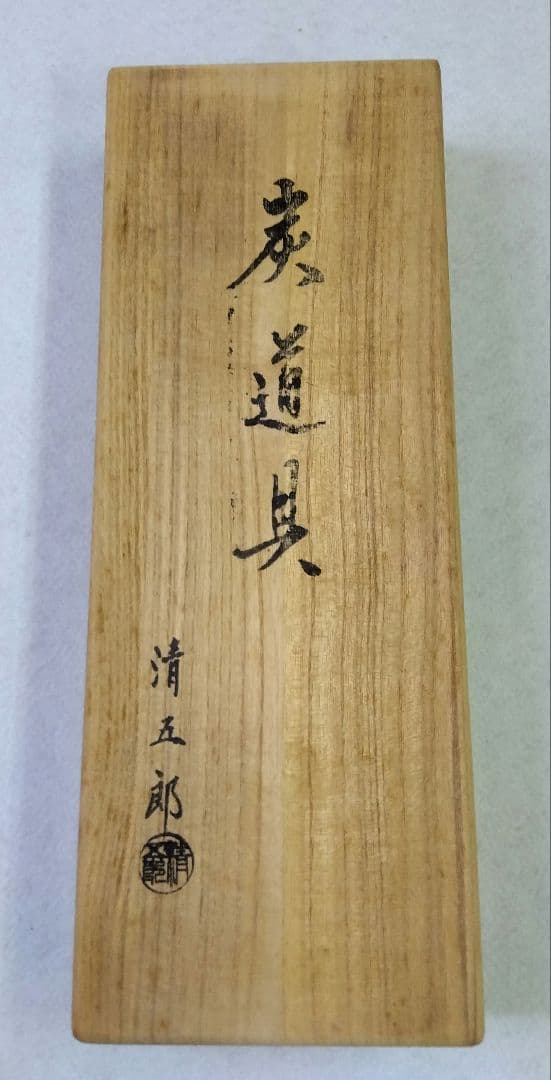 炭道具
清五郎